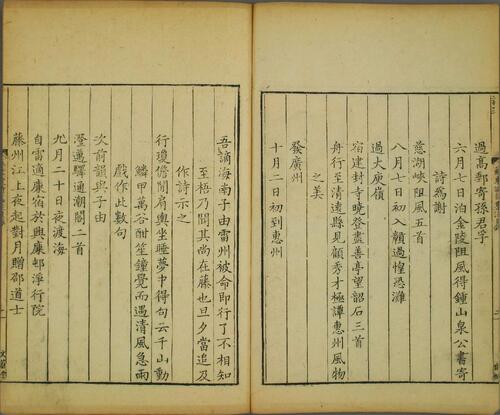 過高郵寄孫君孚
六月七日泊金陵阻風得鍾山泉公書寄
詩為謝
慈湖峽阻風五首
八月七日初入贛過惶恐灘
過大庾嶺
宿建封寺曉登盡善亭望韶石三首
舟行至清遠縣見顧秀才極譚惠州風物
之美
發廣州
十月二日初到惠州
吾謫海南子由雷州被命即行了不相知
至梧乃聞其尚在藤也旦夕當追及
作詩示之
行瓊儋間肩輿坐睡夢中得句云千山動
鱗甲萬谷酣笙鐘覺而遇清風急雨
戲作此數句
次前韻與子由
澄邁驛通潮閣二首
九月二十日夜渡海
自雷適廉宿於興廉邨淨行院
藤州江上夜起對月贈邵道士